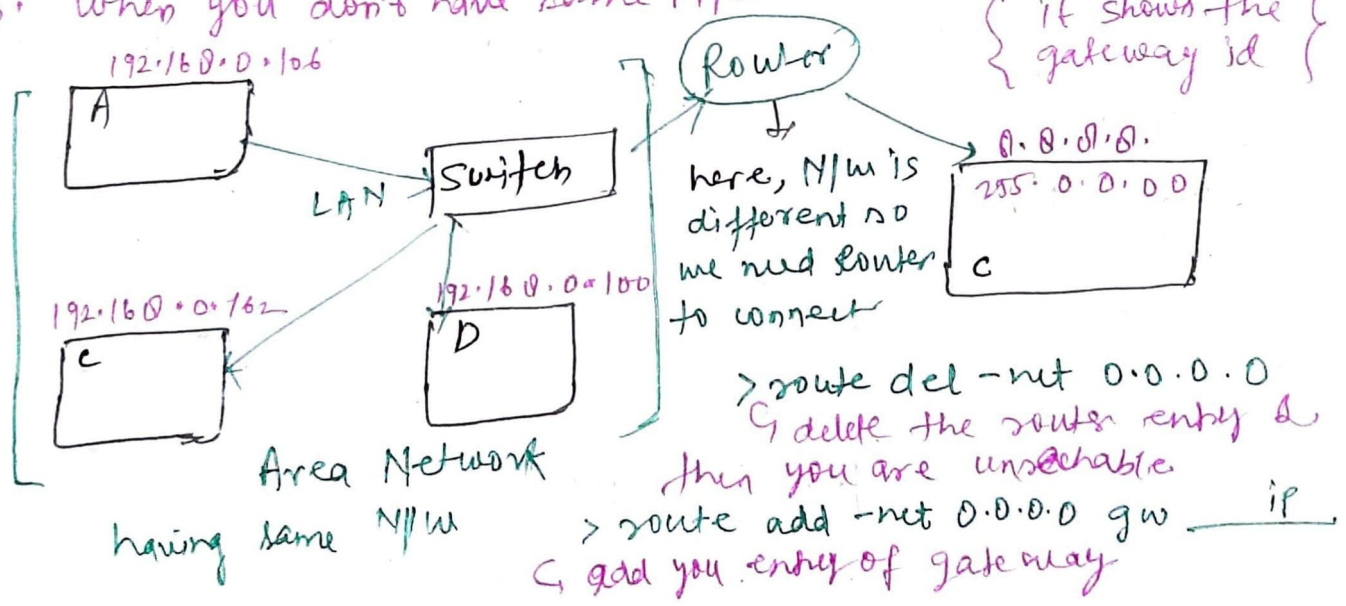 When you don't have same
{ it shows the {
{ gateway id {
192.168.0.106
A
Router
LAN
Switch
8.8.8.8.
255.0.0.00
C
here, N/w is
different so
we need Router
to connect
192.168.0.162
C
192.168.0.100
D
Area Network
having same N/w
> route del -net 0.0.0.0
↳ delete the router entry &
then you are unrechable
> route add -net 0.0.0.0 gw ___ip___.
↳ add you entry of gateway